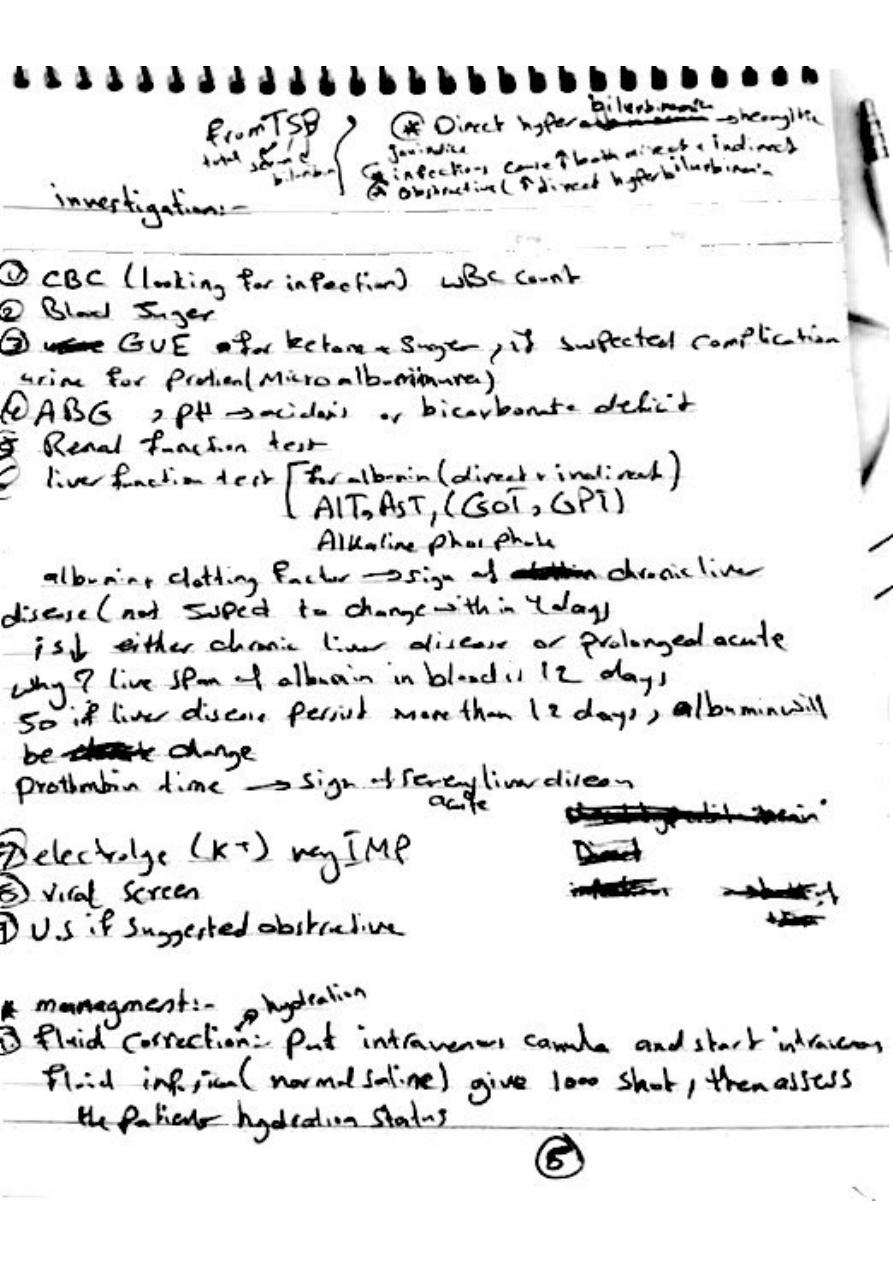 from TSB
total serum
bilurbin
* Direct hyper bilurbinemia →
jaundice
* infections cause ↑ both direct + indirect
* Obstructive (↑ direct hyperbilurbinemia
investigation:-
① CBC (looking for infection) WBC count
② Blood Suger
③ GUE for ketone + Suger, if suspected complication
urine for Protien (Microalbuminurea)
④ ABG , PH → acidosis or bicarbonate deficit
⑤ Renal function test
liver function test [for albumin (direct + indirect)
AlT, AST, (GOT, GPT)
Alkaline phosphate
albumin + clotting factor → sign of chronic liver
disease (not suped to change within 4 days
is ↓ either chronic liver disease or prolonged acute
why? live span of albumin in blood is 12 days
So if liver disease persist more than 12 days, albumin will
be change
Prothrombin time → sign of liver disease
acute
⑦ electrolye (K+) very IMP
⑧ viral screen
⑨ U.S if suggested obstructive
* managment:-
hydration
① fluid correction:- Put intravenous canula and start intravenous
fluid (normal saline) give 1000 shot, then assess
the patients hydration status
⑤